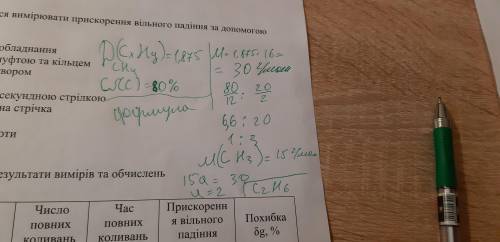 ся вимірювати прискорення вільного падіння за допомогою
обладнання
уфтою та кільцем
вором
секундною стрілкою
на стрічка
оти
D(CxHy)=1,875
CH4
W(C)=80%
формула
M=1,875·16=
=30 г/моль
80/12 : 20/2
6,6 : 20
1 : 3
M(CH3)=15 г/моль
15a=30
a=2
C2H6
результати вимірів та обчислень
Число
повних
коливань
Час
повних
коливань
Прискоренн
я вільного
падіння
Похибка
δg, %